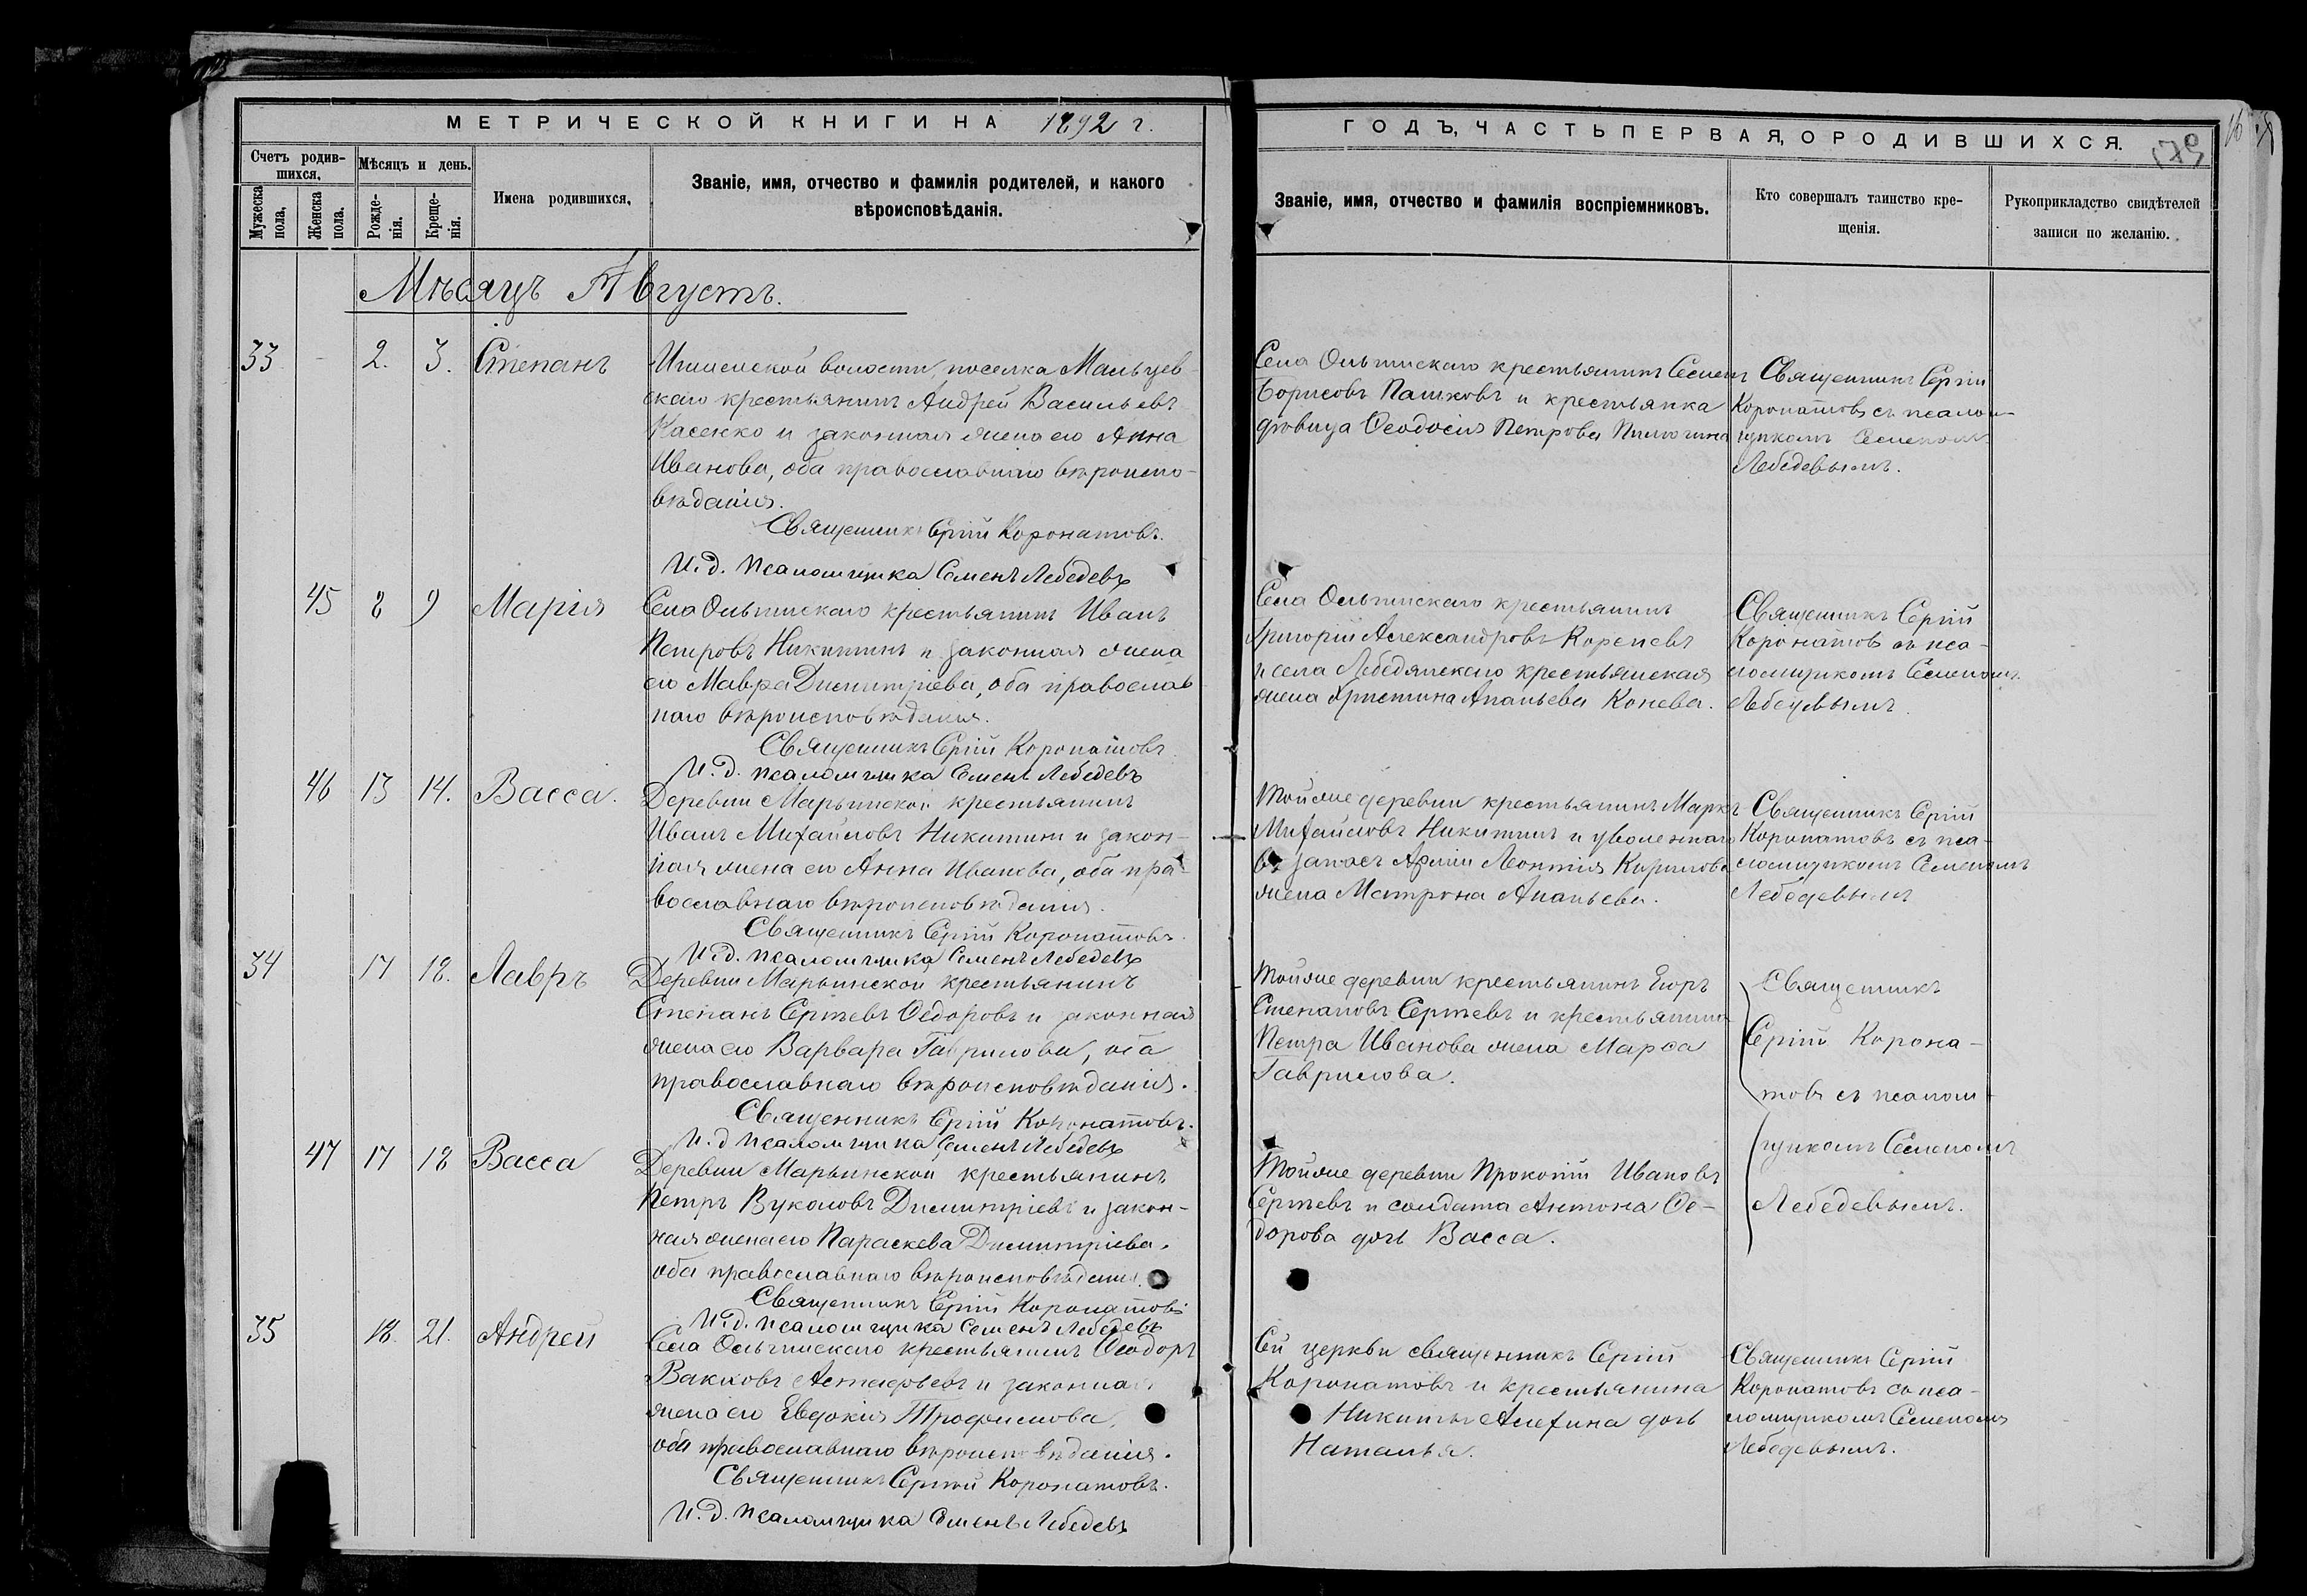 МЕТРИЧЕСКОЙ КНИГИ НА 1892 г.
Счетъ родив-
шихся.
Мѣсяцъ и день.
Мужеска
пола.
Женска
пола.
Рожде-
нія.
Креще-
нія.
Имена родившихся.
Званіе, имя, отчество и фамилія родителей, и какого
вѣроисповѣданія.
Мѣсяцъ Августъ.
33 - 2. 3. Степанъ
Ишимской волости, поселка Мальцев-
скаго крестьянинъ Андрей Васильевъ
Касенко и законная жена его Анна
Иванова, оба православнаго вѣроиспо-
вѣданія.
Священникъ Сергій Коронатовъ.
И.д. псаломщика Семенъ Лебедевъ
45 8 9 Марія
Села Ольгинскаго крестьянинъ Иванъ
Петровъ Никитинъ и законная жена
его Мавра Димитріева, оба православ
наго вѣроисповѣданія.
Священникъ Сергій Коронатовъ
И.д. псаломщика Семенъ Лебедевъ
46 13 14. Васса.
Деревни Марьинской крестьянинъ
Иванъ Михайловъ Никитинъ и закон-
ная жена его Анна Иванова, оба пра-
вославнаго вѣроисповѣданія.
Священникъ Сергій Коронатовъ.
И.д. псаломщика Семенъ Лебедевъ
34 17 18. Лавръ
Деревни Марьинской крестьянинъ
Степанъ Сергѣевъ Ѳедоровъ и законная
жена его Варвара Гаврилова, оба
православнаго вѣроисповѣданія.
Священникъ Сергій Коронатовъ.
И.д псаломщика Семенъ Лебедевъ
47 17 18 Васса
Деревни Марьинской крестьянинъ
Петръ Вуколовъ Димитріевъ и закон-
ная жена его Параскева Димитріева,
оба православнаго вѣроисповѣданія.
Священникъ Сергій Коронатовъ
И.д. псаломщика Семенъ Лебедевъ
35 18. 21. Андрей
Села Ольгинскаго крестьянинъ Ѳеодоръ
Вакховъ Астафьевъ и законная
жена его Евдокія Трофимова,
оба православнаго вѣроисповѣданія.
Священникъ Сергій Коронатовъ.
И.д. псаломщика Семенъ Лебедевъ
ГОДЪ, ЧАСТЬ ПЕРВАЯ, О РОДИВШИХСЯ.
Званіе, имя, отчество и фамилія воспріемниковъ.
Кто совершалъ таинство кре-
щенія.
Рукоприкладство свидѣтелей
записи по желанію.
Села Ольгинскаго крестьянинъ Семенъ
Борисовъ Пашковъ и крестьянка
дѣвица Ѳеодосія Петрова
Священникъ Сергій
Коронатовъ съ псалом-
щикомъ Семеномъ
Лебедевымъ.
Села Ольгинскаго крестьянинъ
Григорій Александровъ Кореневъ
и села Лебедянскаго крестьянская
жена Христина Ананьева Конева.
Священникъ Сергій
Коронатовъ съ пса-
ломщикомъ Семеномъ
Лебедевымъ
Той же деревни крестьянинъ Маркъ
Михайловъ Никитинъ и уволеннаго
въ запасъ Арміи Леонтія Кирилова
жена Матрона Ананьева.
Священникъ Сергій
Коронатовъ съ пса-
ломщикомъ Семеномъ
Лебедевымъ
Той же деревни крестьянинъ Егоръ
Степановъ Сергѣевъ и крестьянина
Петра Иванова жена Марѳа
Гаврилова.
Священникъ
Сергій Корона-
товъ съ псалом-
щикомъ Семеномъ
Лебедевымъ.
Той же деревни Прокопій Ивановъ
Сергѣевъ и солдата Антона Ѳе-
дорова дочь Васса.
Сей церкви священникъ Сергій
Коронатовъ и крестьянина
Никиты Алехина дочь
Наталья.
Священникъ Сергій
Коронатовъ съ пса-
ломщикомъ Семеномъ
Лебедевымъ.